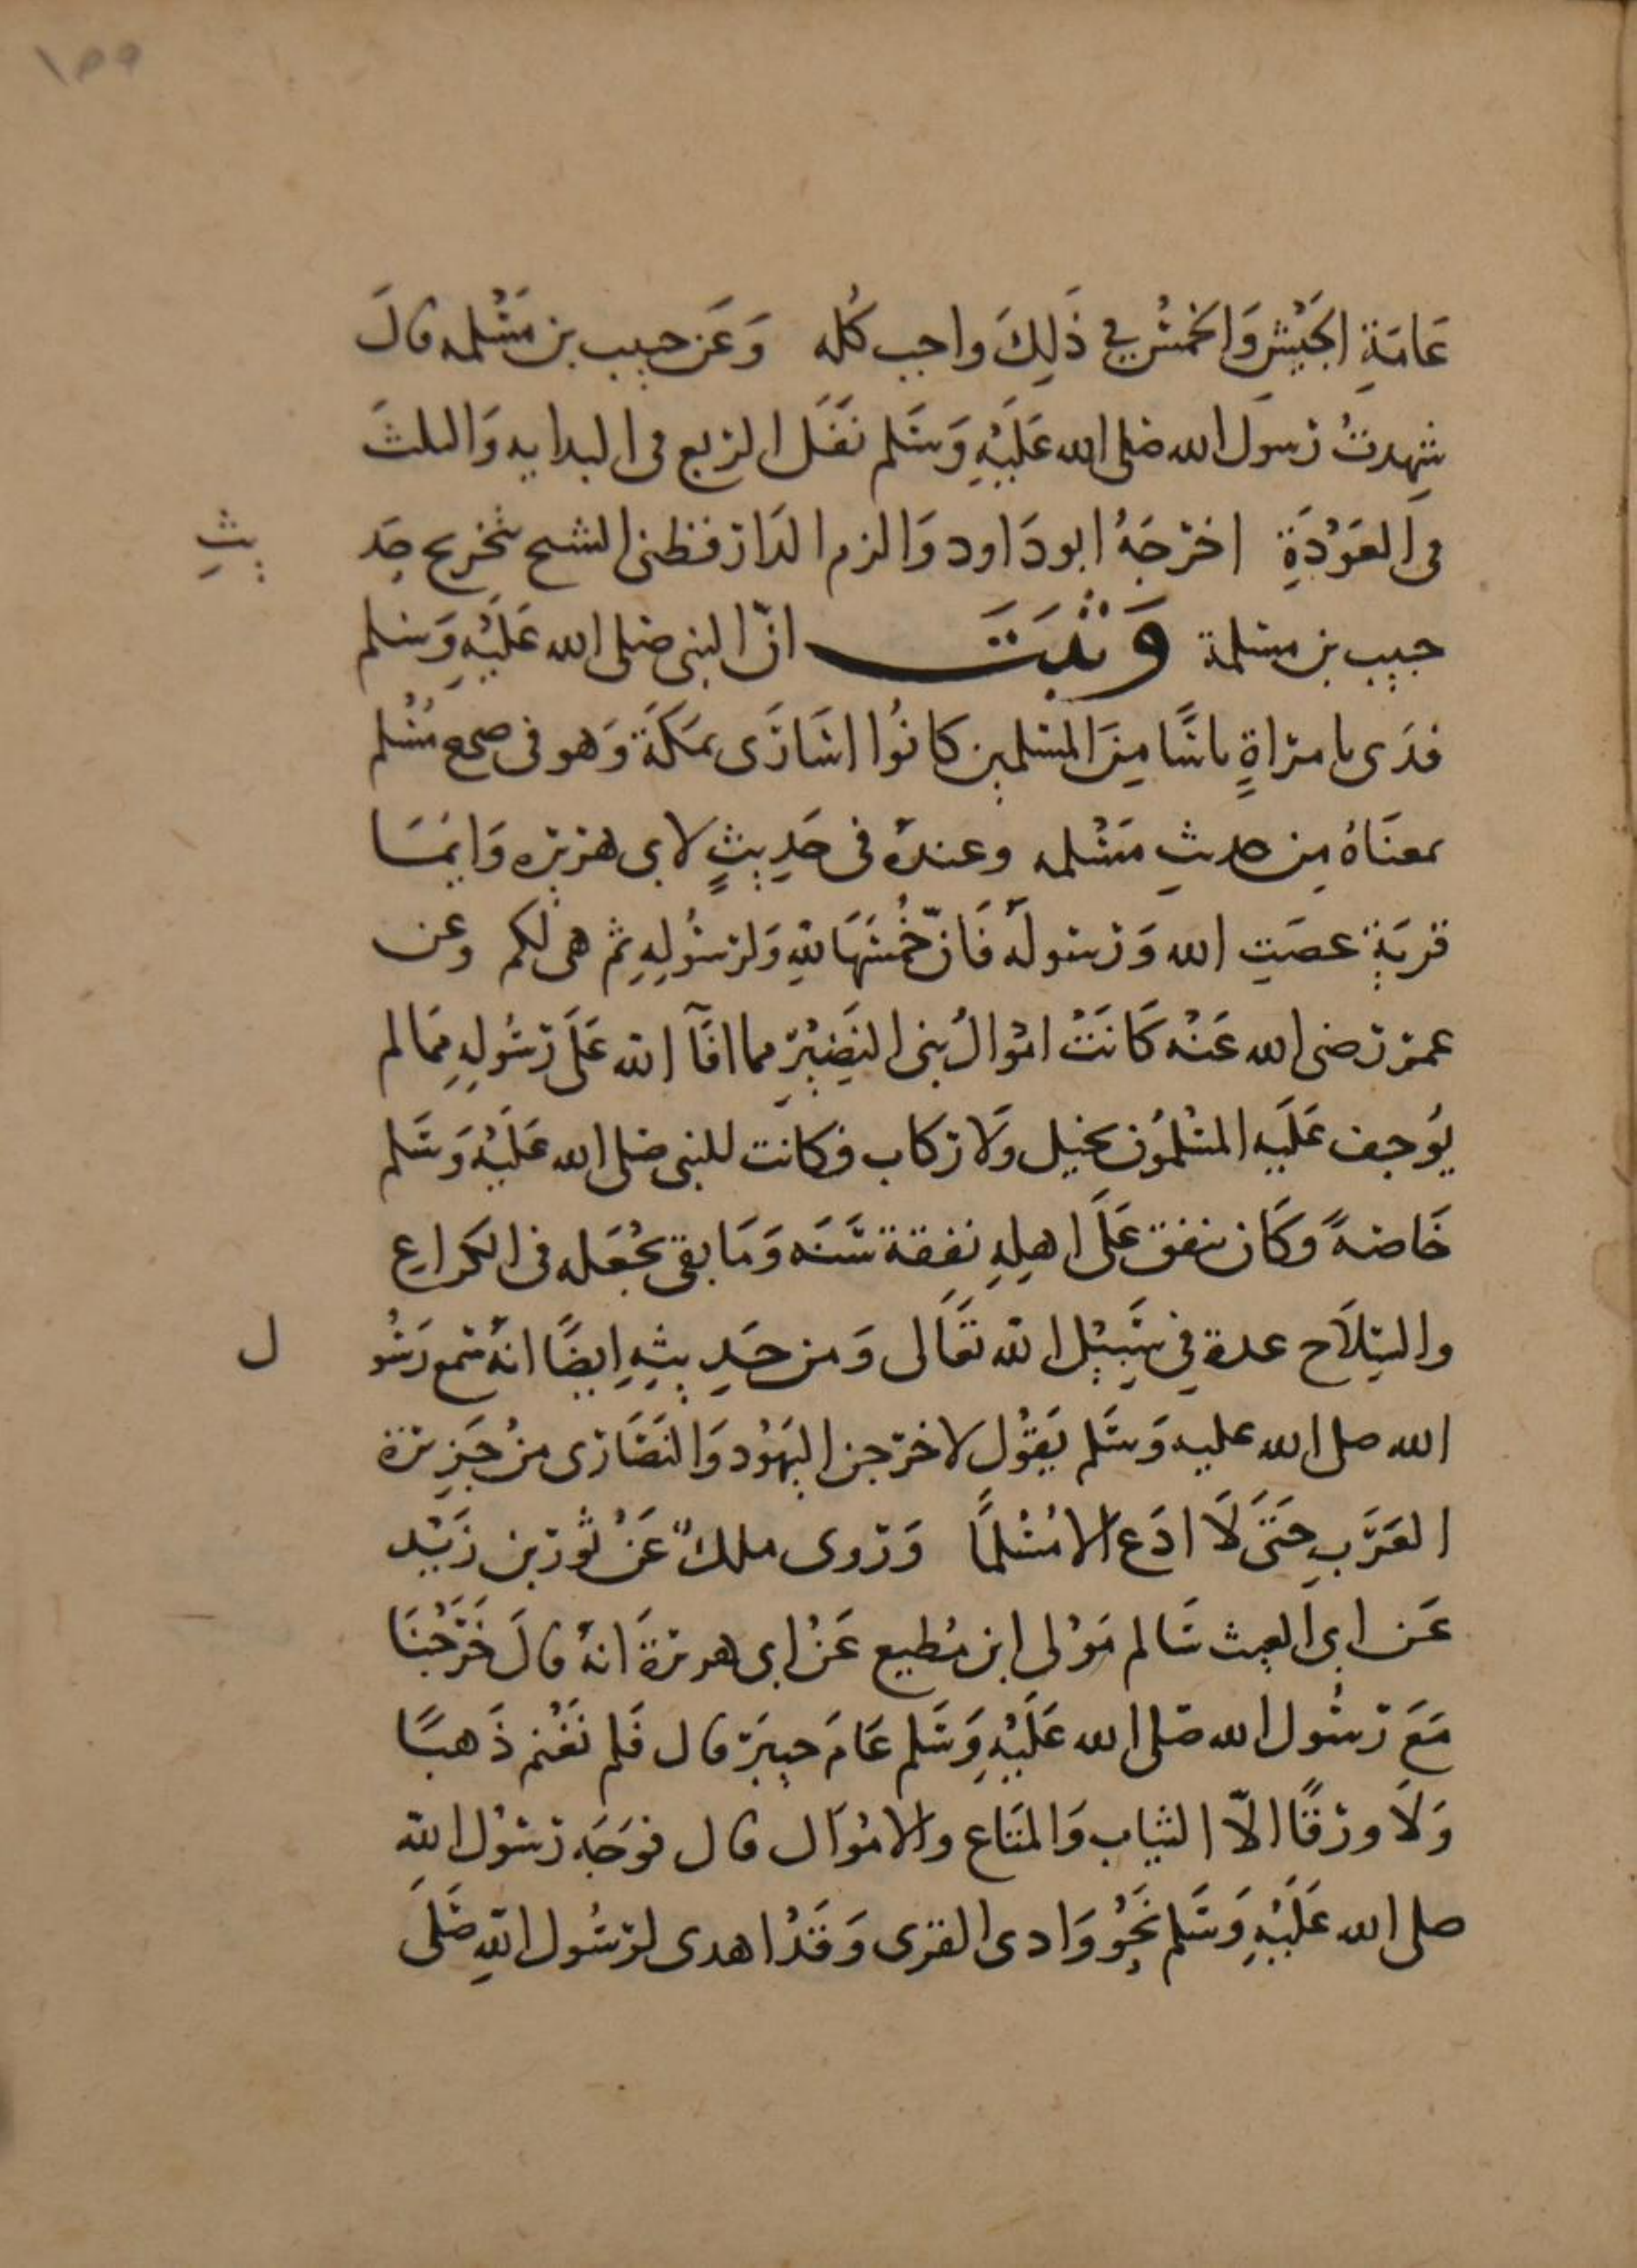 ١٥٩
عَامَةِ الجَيْشِ وَالخمسُ في ذَلِكَ واجب كُله وَعَن حبيب بن مَسْلمه قالَ
شهدتُ رسولَ الله صلى الله عَلَيْهِ وَسَلم نَفَلَ الربع في البدايه وَالثلثَ
في العَوْدَةِ اخرَجَهُ ابودَاود وَالزم الدَار قطنى الشيخ تخريج حَدِ يثِ
حبيب بن مسلمة وَثَبَتَ انّ النبي صلى الله عَلَيْهِ وَسلم
فدَى بامرَاةٍ ناسًا مِنَ المسلمين كانُوا اسَارَى بمَكَةَ وَهو في صحيح مُسْلم
بمعنَاهُ مِن حديثِ مَسْلمه وعندهُ في حَدِيثٍ لابى هريره وَايمَا
قريَةٍ عصَتِ الله وَرَسولَهُ فَانّ خُمُسَهَا للهِ وَلرسُولِهِ ثم هي لكم وعن
عمر رضى الله عَنْه كَانَتْ امْوالُ بنى النَضِيْرِ مما افَآ الله عَلَى رَسُولِهِ مَمالم
يُوجف عَلَيه المسْلمُون بخيل وَلا ركاب فكانت للنبي صلى الله عَلَيْهِ وَسَلم
خَاصَةً وَكَان ينفق عَلَى اهلِهِ نَفقة سَنَه وَمَا بقى يجْعَله في الكراعِ
والسِلَاح عدة في سَبِيْل الله تعَالى وَمن حَدِ يثهِ ايضًا انهُ سَمع رَسُو ل
الله صلى الله عليه وَسَلم يَقُول لاخرجن اليَهُود وَالنَصَارَى منْ جَزِيرة
العَرَبِ حَتَى لَا ادَع الا مُسْلمًا وَرَوى ملك عَنْ ثور بن زَيْد
عَن ابى الغيث سَالم مَوْلى ابن مُطيع عَنْ ابى هريرةَ انهُ قالَ خَرَجْنَا
مَعَ رَسُول الله صَلى الله عَلَيْهِ وَسَلم عَامَ خيبَر قال فَلم نَغْنم ذَهبًا
وَلَا ورقًا الاّ الثياب وَالمتَاع والامْوَال قال فوَجَه رَسُوْل الله
صلى الله عَلَيْهِ وَسَلم نَحْوَ وَادى القرى وَقَدْ اهدى لرَسُول اللهِ صَلى